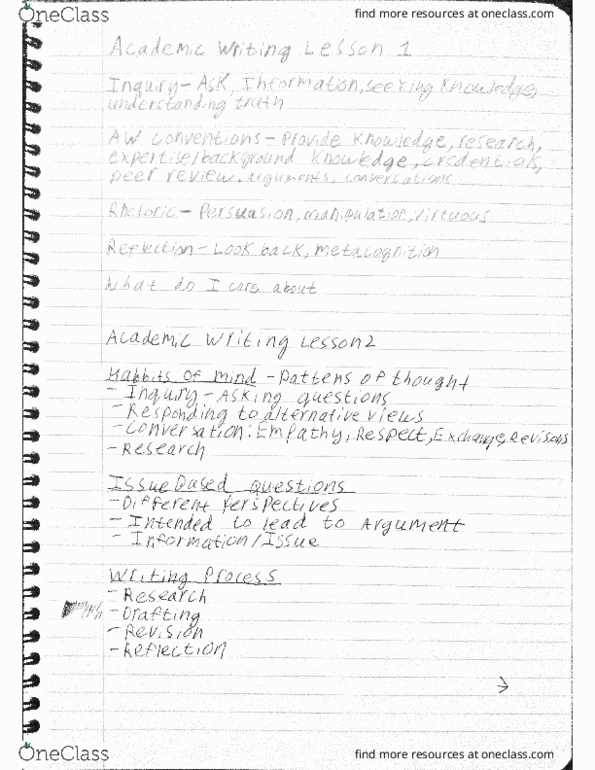 OneClass
find more resources at oneclass.com
Academic Writing Lesson 1
Inquiry - Ask, Information, seeking knowledge,
understanding truth
AW conventions - Provide knowledge, research,
expertise/background knowledge, credentials,
peer review, arguments, conversations
Rhetoric - Persuasion, manipulation, virtuous
Reflection - Look back, metacognition
What do I care about
Academic Writing Lesson 2
Habbits of mind - Pattens of thought
- Inquiry - Asking questions
- Responding to alternative views
- Conversation: Empathy, Respect, Exchange, Revisons
- Research
Issue Based questions
- Different Perspectives
- Intended to lead to Argument
- Information/Issue
Writing Process
- Research
- Drafting
- Revision
- Reflection
→
OneClass
find more resources at oneclass.com